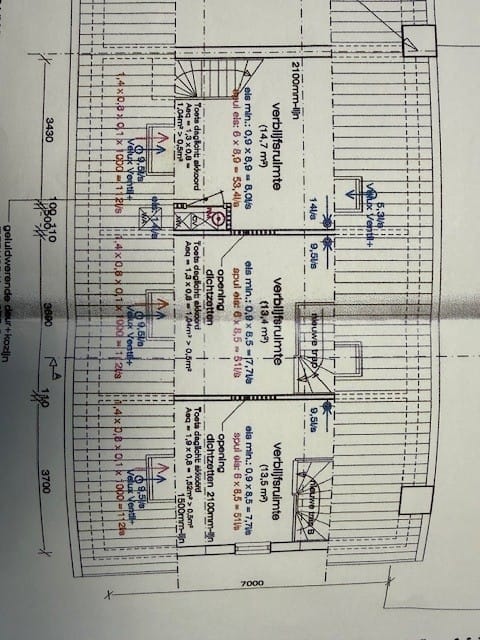 verblijfsruimte
(14,7 m²)
eis min.: 0,9 x 8,9 = 8,0l/s
spui eis: 6 x 8,9 = 53,4l/s
Toets daglicht: akkoord
Aeq = 1,3 x 0,8 =
1,04m² > 0,5m²
2100mm-lijn
1,4 x 0,8 x 0,1 x 1000 = 112l/s
9,5l/s
Velux Ventil+
5,3l/s
Velux Ventil+
14l/s
eis: 14l/s
9,5l/s
verblijfsruimte
(13,4 m²)
eis min.: 0,9 x 8,5 = 7,7l/s
spui eis: 6 x 8,5 = 51l/s
opening
dichtzetten
Toets daglicht: akkoord
Aeq = 1,3 x 0,8 = 1,04m² > 0,5m²
nieuwe trap
1,4 x 0,8 x 0,1 x 1000 = 112l/s
9,5l/s
Velux Ventil+
9,5l/s
verblijfsruimte
(13,5 m²)
eis min.: 0,9 x 8,5 = 7,7l/s
spui eis: 6 x 8,5 = 51l/s
opening
dichtzetten
2100mm-lijn
Toets daglicht: akkoord
Aeq = 1,9 x 0,8 = 1,52m² > 0,5m²
1500mm-lijn
nieuwe trap B
1,4 x 0,8 x 0,1 x 1000 = 112l/s
9,5l/s
Velux Ventil+
3430
100
3690
A
110
3700
7000
geluidwerende deur+kozijn